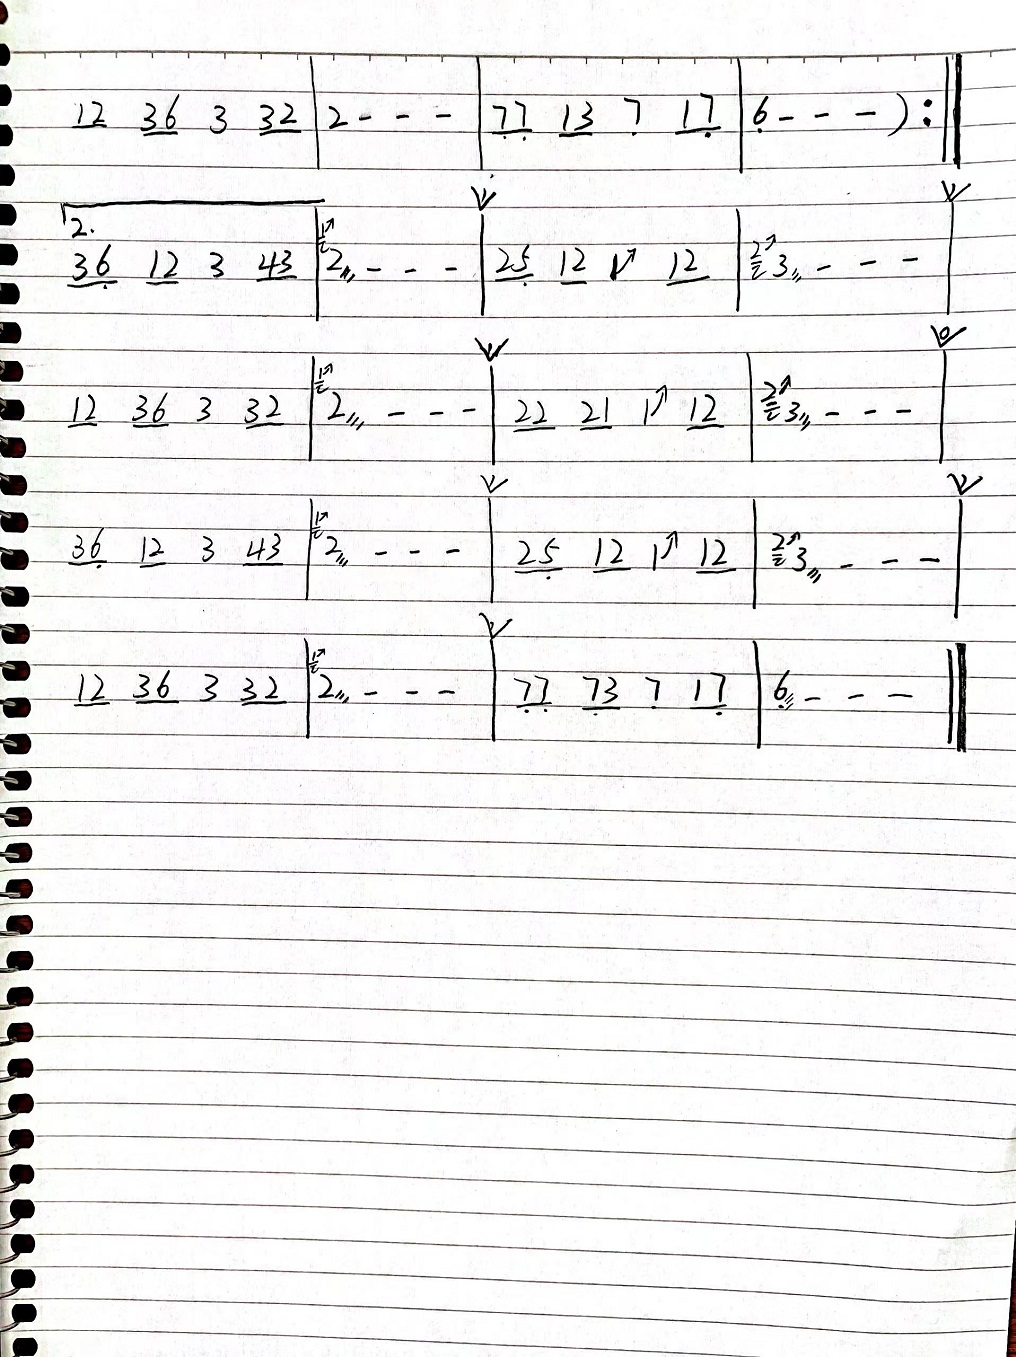 12 36 3 32 | 2 - - - | 77 13 7 17 | 6 - - - ) :||
2.
36 12 3 43 | 12 - - - | 25 12 1 12 | 23 - - - |
12 36 3 32 | 12 - - - | 22 21 1 12 | 23 - - - |
36 12 3 43 | 12 - - - | 25 12 1 12 | 23 - - - |
12 36 3 32 | 12 - - - | 77 73 7 17 | 6 - - - ||